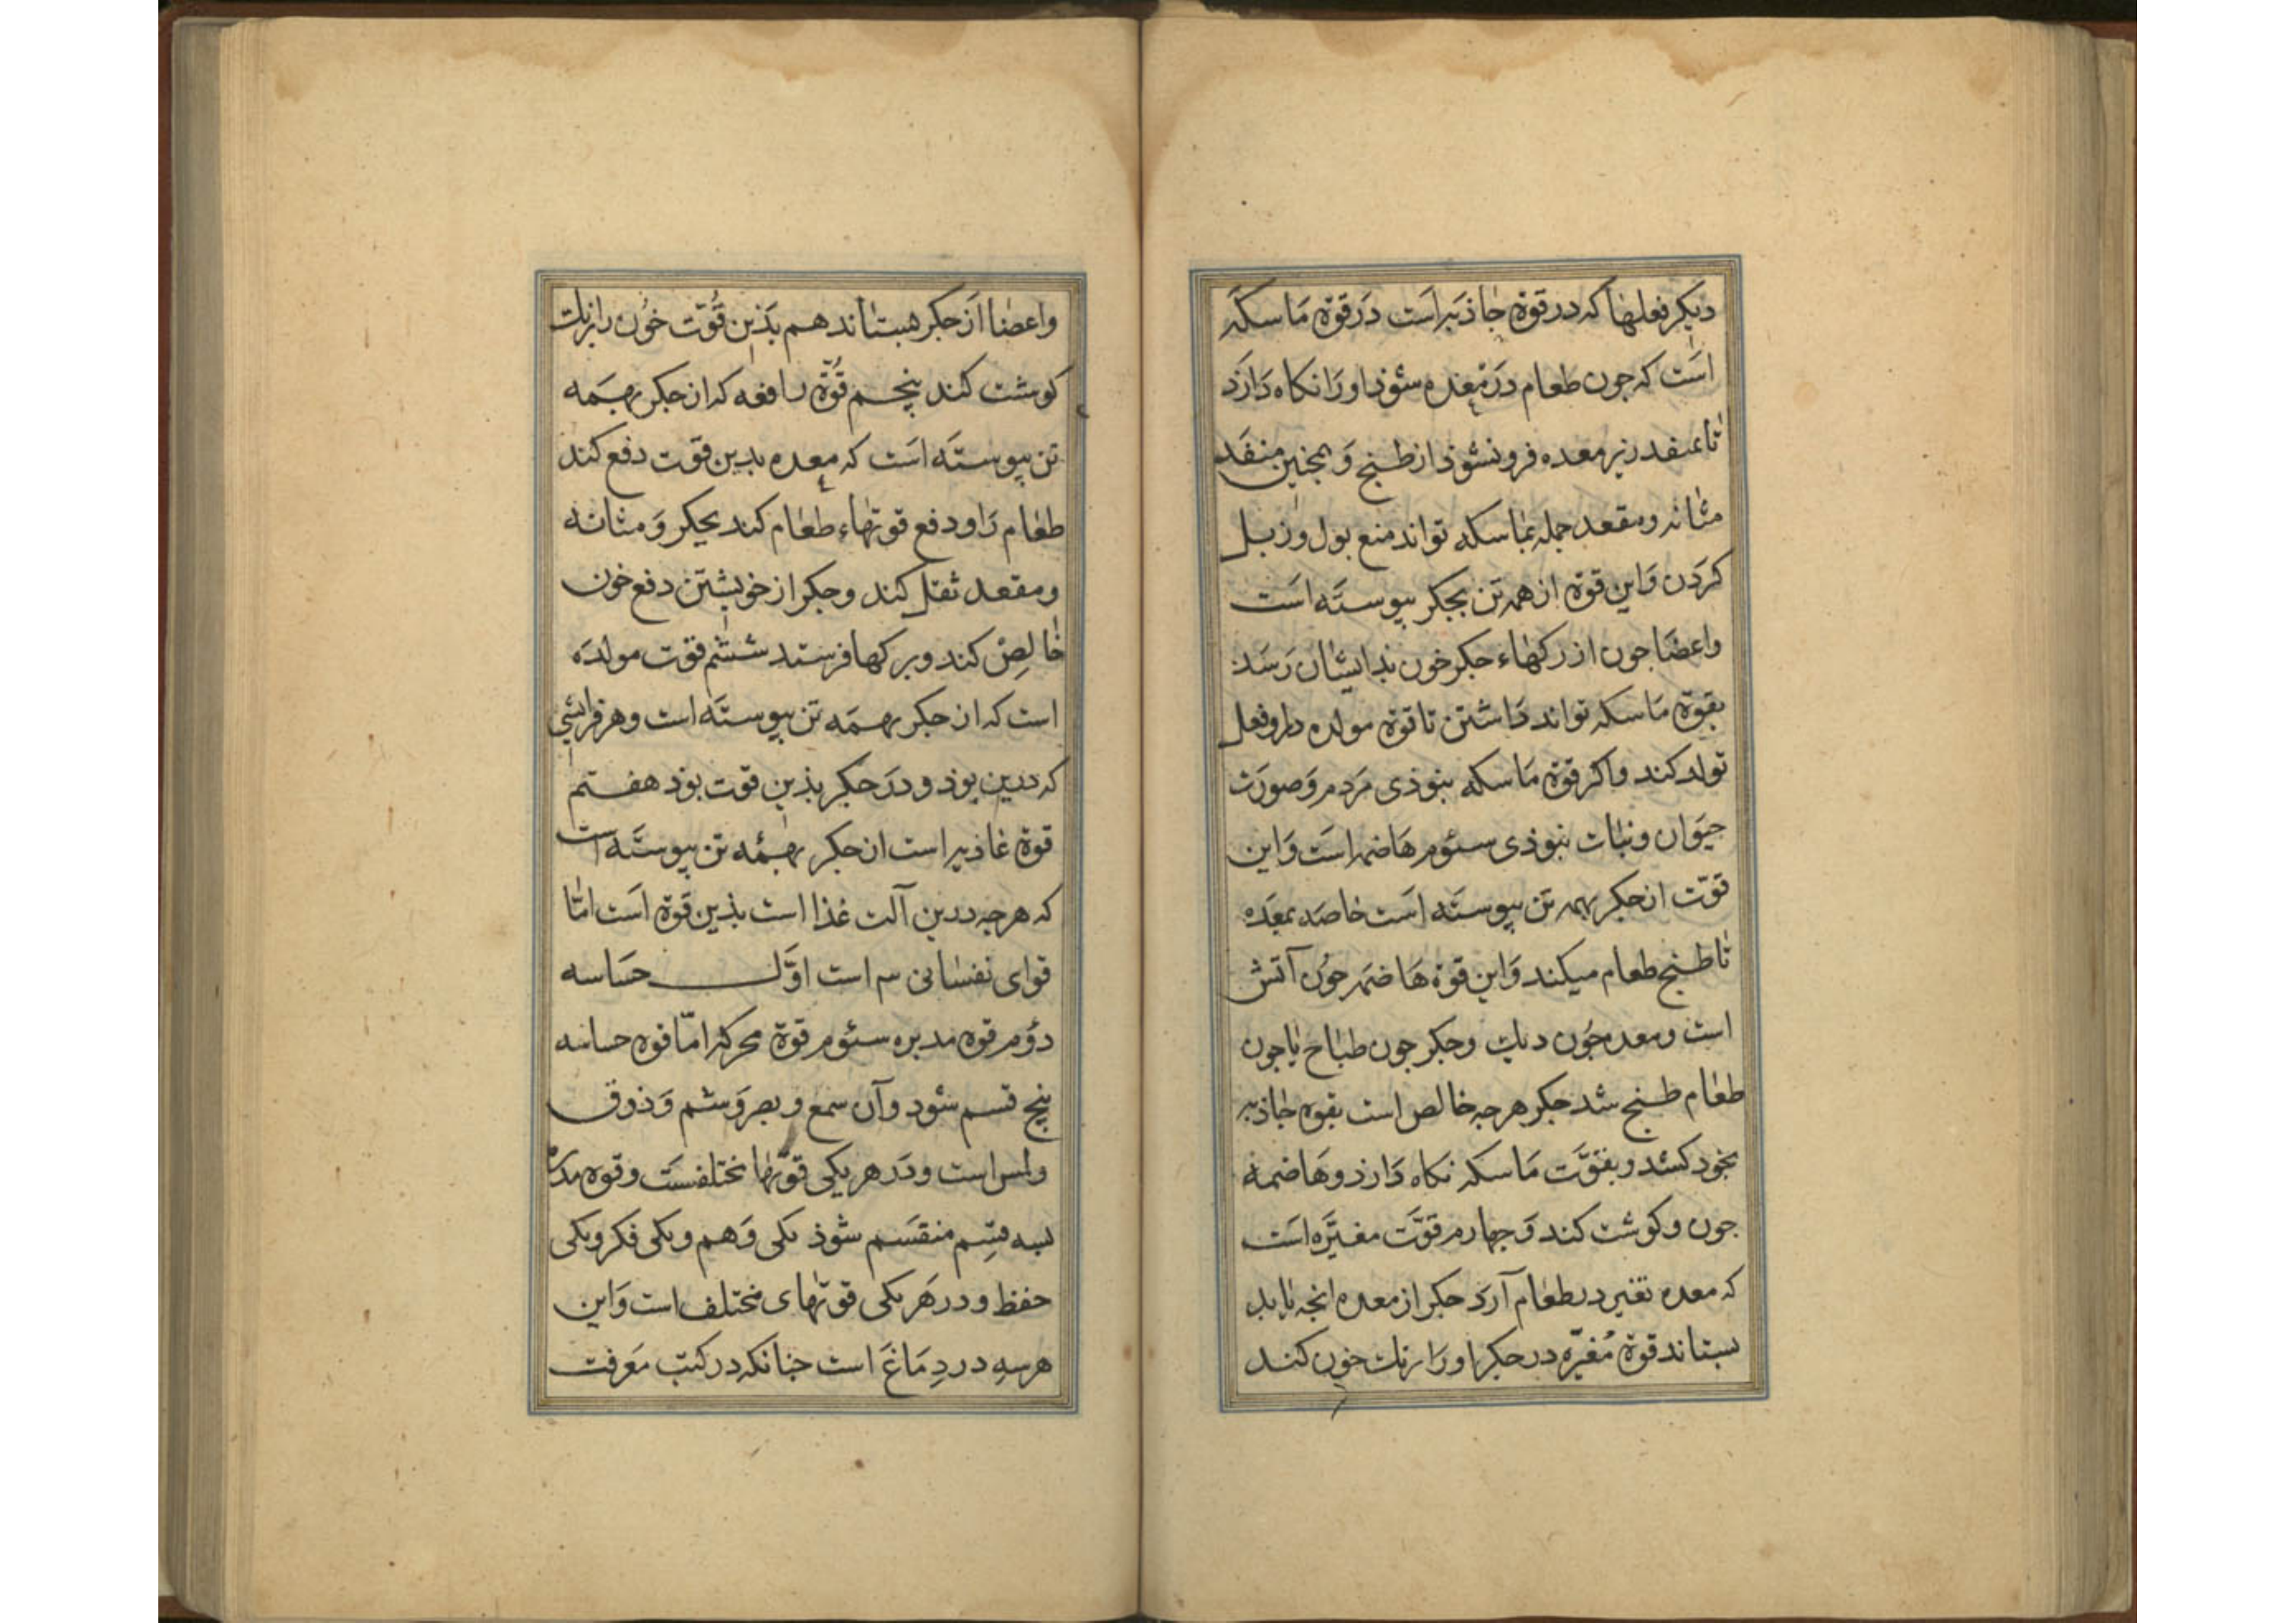 دیکر فعلها که در قوة جاذبه است در قوة ماسکه
است که جون طعام در معده شوذ او را نکاه دارذ
تا بمنفد زیر معده فرو نشوذ از طبخ و همجنین منفد
مثانه و مقعد جمله بماسکه تواند منع بول و زبل
کردن و این قوة از همه تن بجکر پیوسته است
و اعضا جون از رکهاء جکر خون بدایشان رسد
بقوة ماسکه تواند داشتن تا قوة مولده دارو فعل
تولد کند و اکر قوة ماسکه نبوذی مردم و صورت
حیوان و نبات نبوذی سئوم هاضمه است و این
قوّت از جکر بهمه تن پیوسته است خاصه بمعده
تا طبخ طعام میکند و این قوة هاضمه جون آتش
است و معده جون دیك و جکر جون طباخ یا جون
طعام طبخ شد جکر هرجه خالص است بقوة جاذبه
بخود کشد و بقوّت ماسکه نکاه دارذ و هاضمه
جون و کوشت کند و جهارم قوّت مغیّره است
که معده تغیر در طعام آرد جکر از معده انجه یابد
بستاند قوة مُغیّره در جکر او را رنك خون کند
و اعضا از جکر بستاند هم بذین قُوّت خون را رنك
کوشت کند پنجم قُوّة رافعه که از جکر بهمه
تن پیوسته است که معده بدین قوّت دفع کند
طعام را و دفع قوتهاء طعام کند بجکر و مثانه
و مقعد ثقل کند و جکر از خویشتن دفع خون
خالِصْ کند و برکها فرستد ششم قوّت مولده
است که از جکر بهمه تن پیوسته است و هر فرایشی
که درین بوذ و در جکر بذین قوت بوذ هفتم
قوة غاذیه است از جکر بهمه تن پیوسته است
که هرجه درین آلت غذا است بذین قوة است امّا
قوای نفسانی سه است اوّل حسّاسه
دؤم قوة مدبره سئوم قوة محرکه امّا قوة حساسه
پنج قسم شود و آن سمع و بصر و شم و ذوق
و لمس است و در هر یکی قوّتها مختلفست و قوة مدبره
بسه قسِم منقسم شوذ یکی وَهم و یکی فکر و یکی
حفظ و در هر یکی قوّتهای مختلف است و این
هر سه در دِمَاغ است جنانکه در کتب معرفت